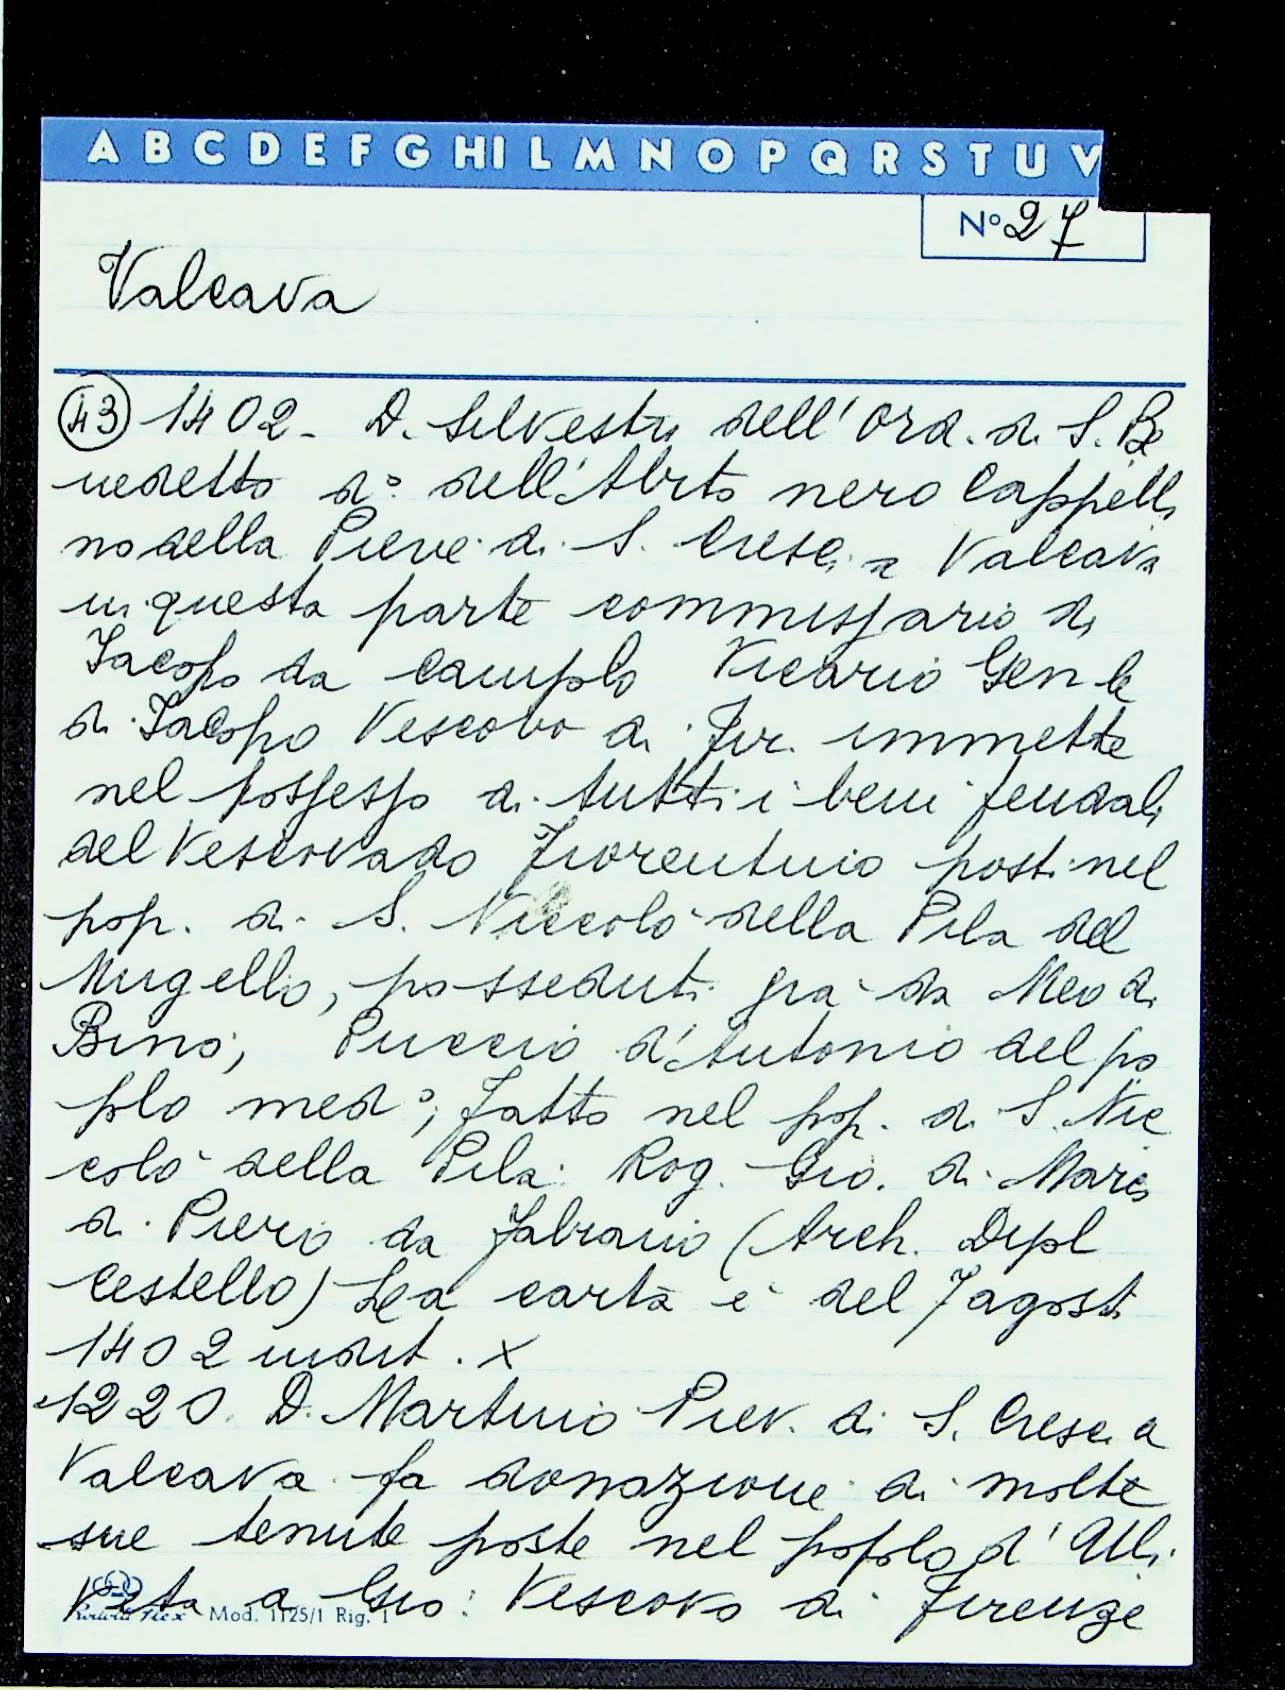 A B C D E F G HI L M N O P Q R S T U V
N° 27
Valcava
(43) 1402 - D. Silvestri dell' Ord. di S. Be
nedetto do dell'Abito nero Cappella
no della Pieve di S. Cresci a Valcava
in questa parte commissario di
Iacopo da Campolo Vicario Gen le
di Iacopo Vescovo di Fir. immette
nel possesso di tutti i beni feudali
del Vescovado Fiorentino posti nel
pop. di S. Niccolò della Pila del
Mugello, posseduti già da Meo di
Bino, Puccio d'Antonio del po
polo med°, fatto nel pop. di S. Nic
colò della Pila. Rog. Gio. di Mario
di Piero da Fabrano (Arch. Dipl
Cestello) La carta è del 7 agosti
1402 indit. X
1220. D. Martino Piev. di S. Cresci a
Valcava fa donazione di molte
sue tenute poste nel popolo d' Uli
veta a Gio: Vescovo di Firenze
Mod. 1125/1 Rig. 1